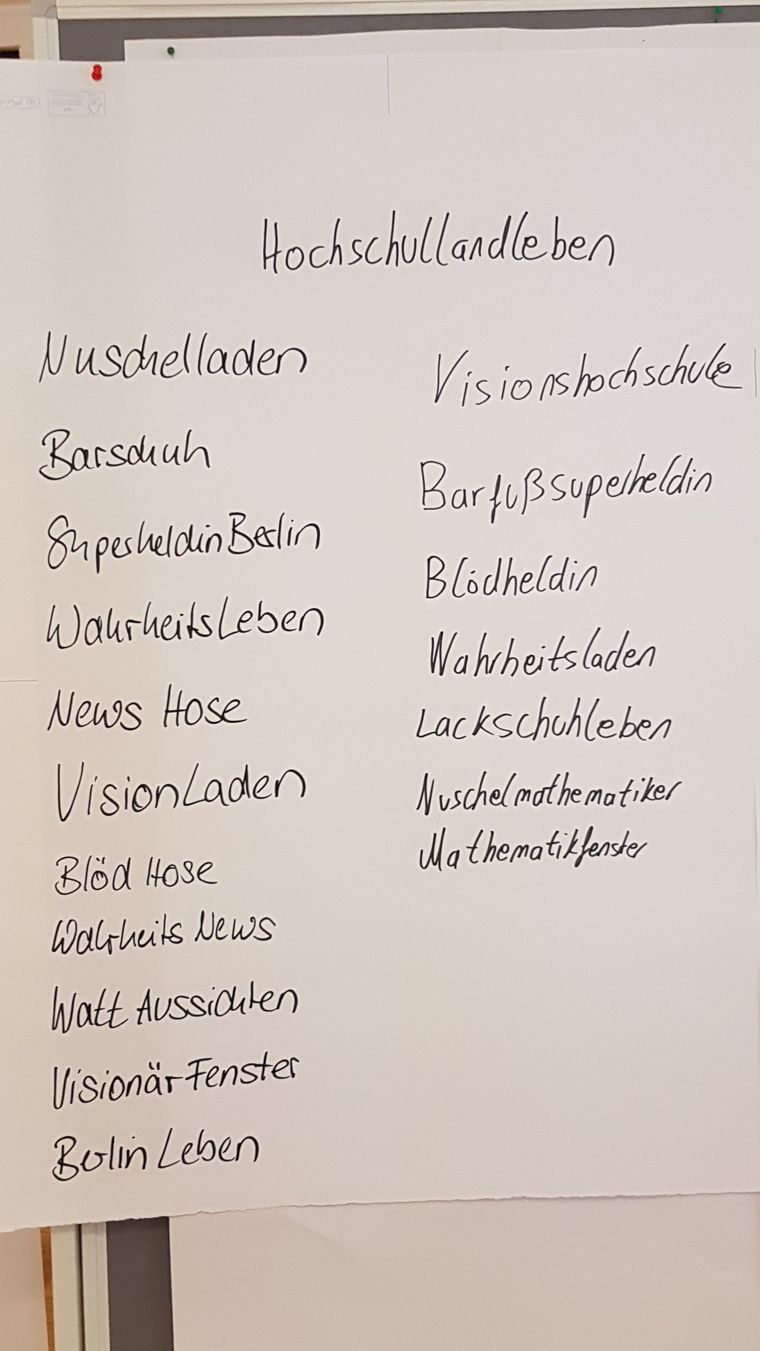 Hochschullandleben
Nuschelladen
Barschuh
SuperheldinBerlin
WahrheitsLeben
News Hose
VisionLaden
Blöd Hose
Wahrheits News
Watt Aussichten
Visionär Fenster
Berlin Leben
Visionshochschule
Barfußsuperheldin
Blödheldin
Wahrheitsladen
Lackschuhleben
Nuschelmathematiker
Mathematikfenster